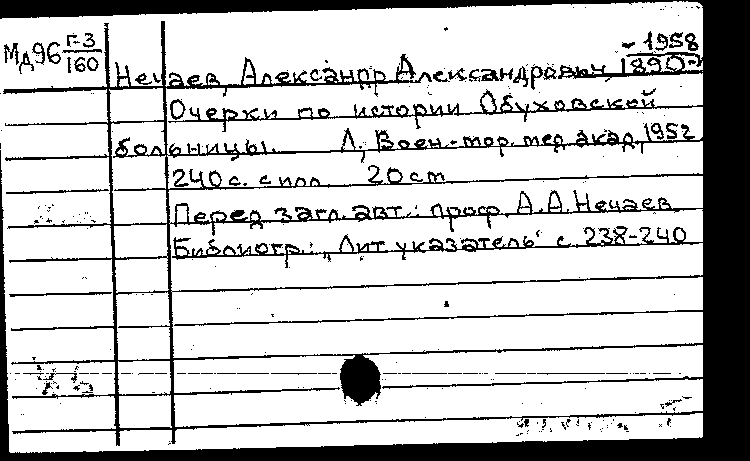 Мд96 Г-3/160
- 1958
Нечаев, Александр Александрович, 1890-
Очерки по истории Обуховской
больницы. Л., Воен.-мор. мед. акад., 1952
240 с. с илл. 20 cm
Перед загл. авт.: проф. А.А. Нечаев
Библиогр.: „Лит. указатель“ с. 238-240